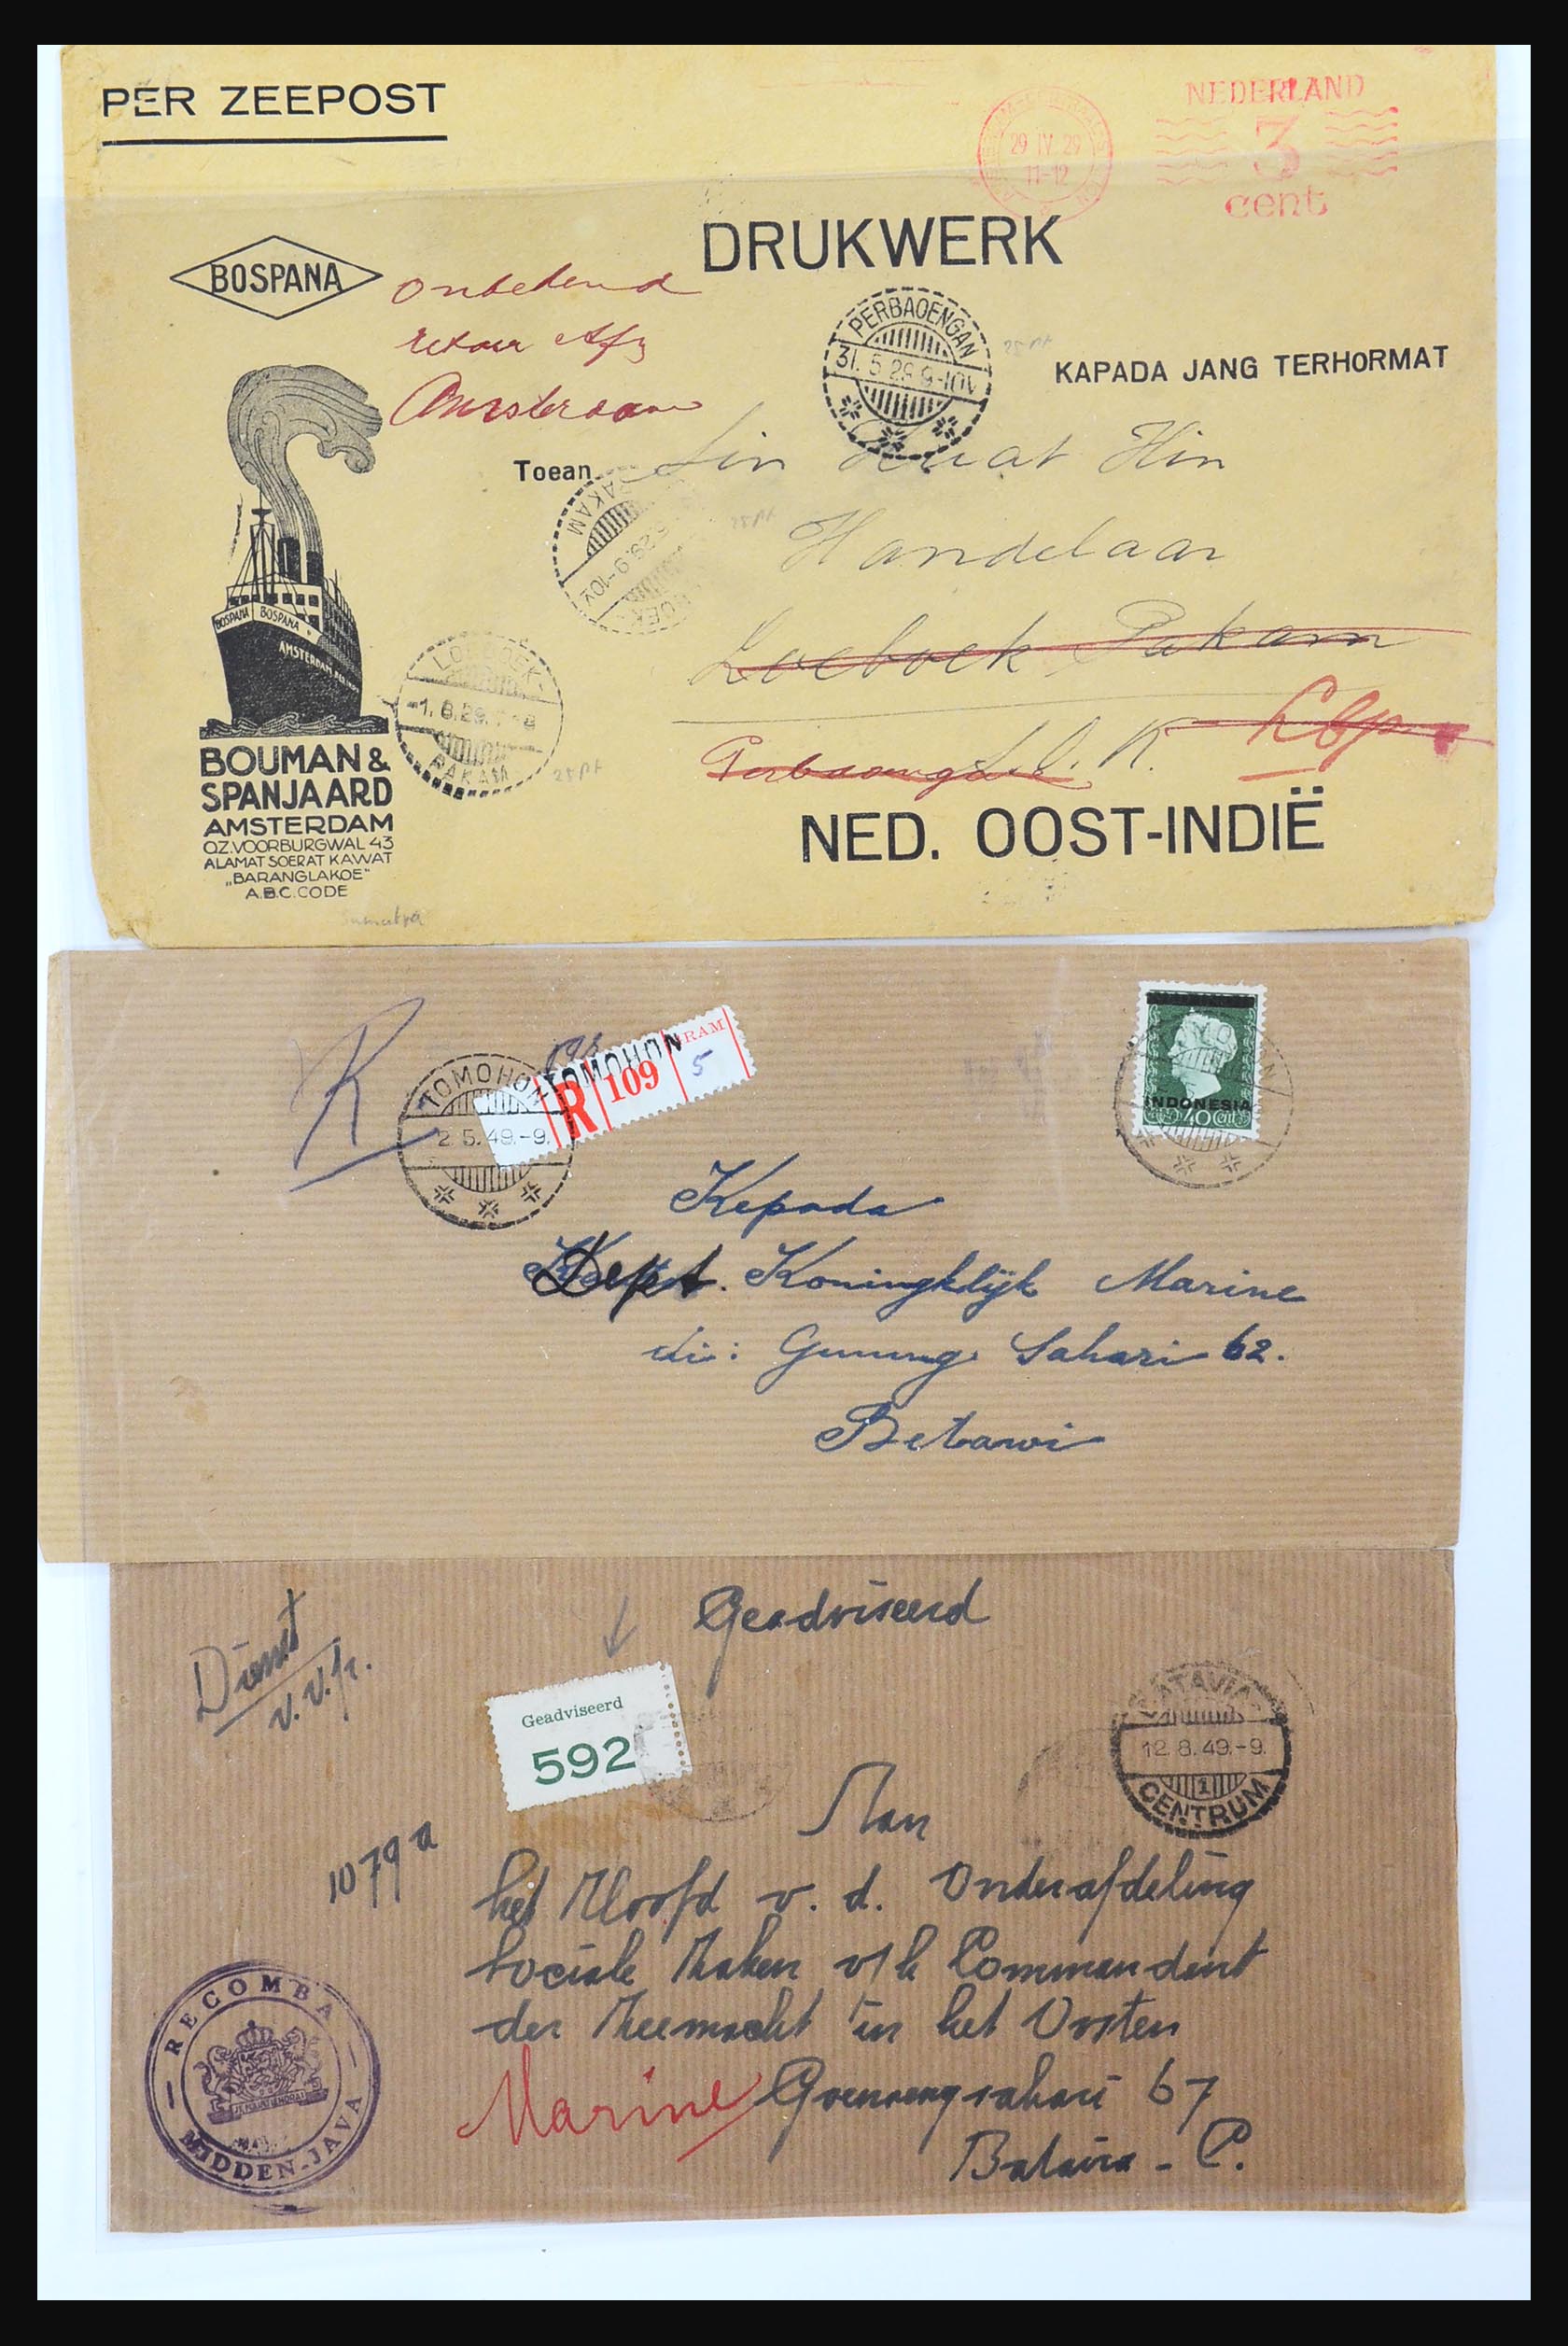 PER ZEEPOST
NEDERLAND
3
cent
29 IV. 29
11-12
DRUKWERK
BOSPANA
Onbekend
retour Afz
Amsterdam
PERBAOENGAN
31. 5 29. 9-10V
25 pt
KAPADA JANG TERHORMAT
Toean
Hin
PAKAM
29. 9-10V
25 pt
Handelaar
Loeboek Pakam
BOSPANA BOSPANA
AMSTERDAM
LOEBOEK-
-1. 6.29.
PAKAM
25 pt
Perbaoengan
S. O. K.
BOUMAN &
SPANJAARD
AMSTERDAM
OZ. VOORBURGWAL 43
ALAMAT SOERAT KAWAT
„BARANGLAKOE"
A.B.C. CODE
NED. OOST-INDIË
Sumatra
R
TOMOHON
2 5. 49.-9.
TOMOHON
R 109
RAM
5
INDONESIA
40 cent
Kepada
Dept. Koningklijk Marine
di: Gunung Sahari 62.
Betawi
Geadviseerd
Dienst
v.v.
Geadviseerd
592
BATAVIA-
12. 8. 49.-9.
1
CENTRUM
Aan
1079 a
het Hoofd v. d. Onderafdeling
Sociale Zaken v/d Commandant
der Zeemacht in het Oosten
Marine Goenoengsahari 67
Batavia - C.
RECOMBA
MIDDEN-JAVA